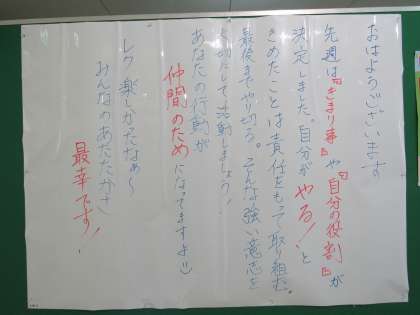 おはようございます
先週は『きまり事』や『自分の役割』が
決定しました。自分が やる！ と
きめたことは責任をもって取り組む。
最後までやり切る。そんな強い意志を
大切にして活動しましょう！
あなたの行動が
仲間のためになってますよ
レク楽しかったなぁ〜
みんなのあたたかさ
最幸です！